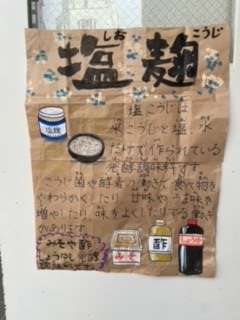 しお こうじ
塩麹
塩こうじは
米こうじと塩、水
だけで作られている
発酵調味料です
塩麹
こうじ菌や酵素の働きで食べ物を
やわらかくしたり 甘味やうま味を
増やしたり、味をよくしたりする働き
があります
みそや酢
しょうゆも発酵
みそ
酢